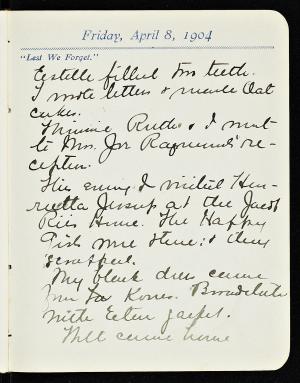 Friday, April 8, 1904
"Lest We Forget."
Estelle filled two teeth.
I wrote letters & made Oat
cakes.
Minnie Ruth & I went
to Mrs. Jos Raymond's re-
ception.
This evening I visited Hen-
rietta Jessup at the Jacob
Riis House. The Happy
Girls were there; & they
scrapped.
My black dress came
from La Broadcloth
with Eton jacket.
Will came home